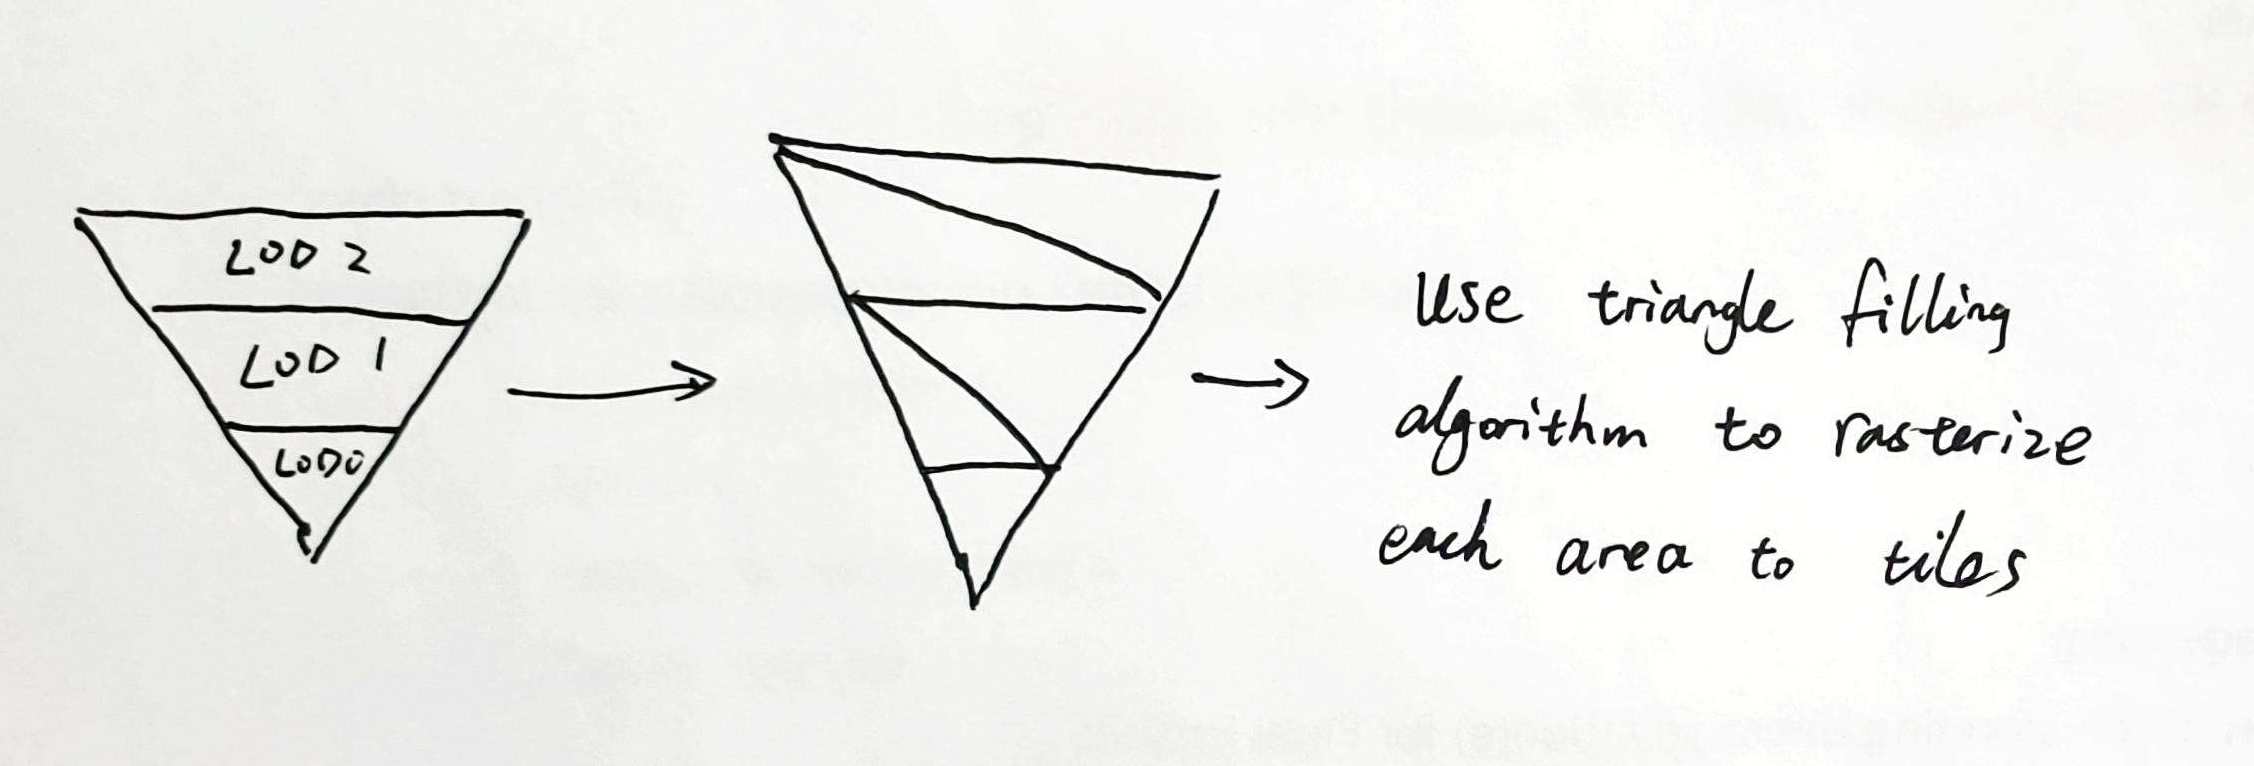 LOD 2
LOD 1
LOD0
Use triangle filling
algorithm to rasterize
each area to tiles